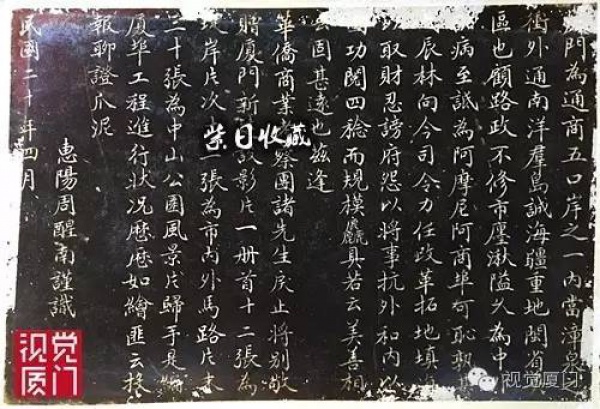 廈門為通商五口岸之一內當漳泉
衝外通南洋羣島誠海疆重地閩省
區也顧路政不修市廛湫隘久為中
病至誠為阿摩尼阿商埠可恥孰
辰林向今司令力任政革拓地填
以取財忍謗府怨以將事抗外和內以
功閱四稔而規模麤具若云美善相
云固甚遠也茲逢
華僑商業 察團諸先生戾止將別敬
贈廈門新 設影片一冊首十二張為
堤岸片次 一張為市內外馬路片末
二十張為中山公園風景片歸乎是
廈埠工程進行狀况歷歷如繪匪云投
報聊證爪泥
民國二十年四月
惠陽周醒南謹識
柴日收藏
视觉厦门
视觉厦门